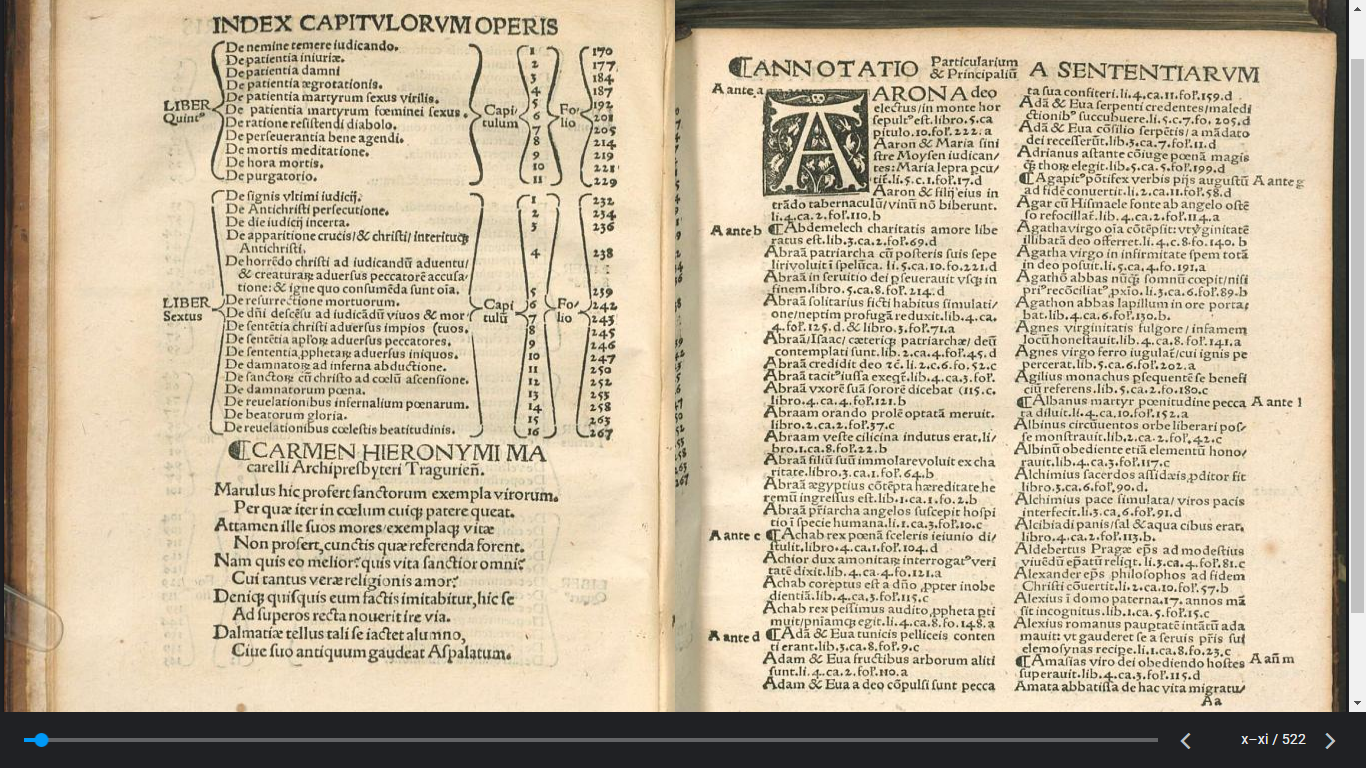 INDEX CAPITVLORVM OPERIS
LIBER Quintꝰ
De nemine temere iudicando. 1 170
De patientia iniuriæ. 2 177
De patientia damni 3 184
De patientia ægrotationis. 4 187
De patientia martyrum sexus virilis. 5 192
De patientia martyrum fœminei sexus. Capitulum 6 Folio 201
De ratione resistendi diabolo. 7 205
De perseuerantia bene agendi. 8 214
De mortis meditatione. 9 219
De hora mortis. 10 221
De purgatorio. 11 229
LIBER Sextus
De signis vltimi iudicij. 1 232
De Antichristi persecutione. 2 234
De die iudicij incerta. 3 236
De apparitione crucis/& christi/interituqꝫ
Antichristi. 4 238
De horrēdo christi ad iudicandū aduentu/
& creaturaꝝ aduersus peccatorē accusa/
tione: & igne quo consumēda sunt oīa. 5 239
De resurrectione mortuorum. Capitulū 6 Folio 242
De dñi descēsu ad iudicādū viuos & mor 7 243
De sentētia christi aduersus impios (tuos. 8 245
De sentētia aploꝝ aduersus peccatores. 9 246
De sententia ꝓphetaꝝ aduersus iniquos. 10 247
De damnatoꝝ ad inferna abductione. 11 250
De sanctoꝝ cū christo ad cœlū ascensione. 12 252
De damnatorum pœna. 13 253
De reuelationibus infernalium pœnarum. 14 258
De beatorum gloria. 15 263
De reuelationibus cœlestis beatitudinis. 16 267
¶CARMEN HIERONYMI MA
carelli Archipresbyteri Tragurieñ.
Marulus hic profert sanctorum exempla virorum.
Per quæ iter in cœlum cuiqꝫ patere queat.
Attamen ille suos mores/exemplaqꝫ vitæ
Non profert, cunctis quæ referenda forent.
Nam quis eo melior? quis vita sanctior omni?
Cui tantus veræ religionis amor?
Deniqꝫ quisquis eum factis imitabitur, hic se
Ad superos recta nouerit ire via.
Dalmatiæ tellus tali se iactet alumno,
Ciue suo antiquum gaudeat Aspalatum.
¶ANNOTATIO Particularium & Principaliū A SENTENTIARVM
A ante a
AARONA deo
electus/in monte hor
sepultꝰ est.libro.5.ca
pitulo.10.fol.222.a
Aaron & Maria sini
stre Moysen iudican/
tes: Maria lepra ꝑcu/
tit.li.5.c.1.fol.17.d
Aaron & filij eius in
trādo tabernaculū/vinū nō biberunt.
li.4.ca.2.fol.110.b
A ante b ¶Abdemelech charitatis amore libe
ratus est.lib.3.ca.2.fol.69.d
Abraā patriarcha cū posteris suis sepe
liri voluit ī spelūca. li.5.ca.10.fo.221.d
Abraā in seruitio dei pseuerauit vsqꝫ in
finem.libro.5.ca.8.fol.214.d
Abraā solitarius ficti habitus simulati/
one/neptim profugā reduxit.lib.4.ca.
4.fol.125.d.& libro.3.fol.71.a
Abraā/Isaac/cæteriqꝫ patriarchæ/deū
contemplati sunt.lib.2.ca.4.fol.45.d
Abraā credidit deo ⁊c̄. li.2.c.6.fo.52.c
Abraā tacitꝰ iussa exeqt̄.lib.4.ca.3.fol.
Abraā vxorē suā sororē dicebat (115.c.
libro.4.ca.4.fol.121.b
Abraam orando prolē optatā meruit.
libro.2.ca.2.fol.37.c
Abraam veste cilicina indutus erat.li/
bro.1.ca.8.fol.22.b
Abraā filiū suū immolare voluit ex cha
ritate.libro.3.ca.1.fol.64.b
Abraā ægyptius cōtēpta hæreditate he
remū ingressus est.lib.1.ca.1.fo.2.b
Abraā pr̄iarcha angelos suscepit hospi
tio ī specie humana.li.1.ca.3.fol.10.c
A ante c ¶Achab rex pœnā sceleris ieiunio di/
stulit.libro.4.ca.1.fol.104.d
Achior dux amonitaꝝ interrogatꝰ veri
tatē dixit.lib.4.ca.4.fo.121.a
Achab coreptus est a dño ꝓpter inobe
dientiā.lib.4.ca.3.fol.115.c
Achab rex pessimus audito ꝓpheta pti
muit/pniamqꝫ egit.li.4.ca.8.fol.148.a
A ante d ¶Adā & Eua tunicis pelliceis conten
ti erant.lib.3.ca.8.fol.9.c
Adam & Eua fructibus arborum aliti
sunt.li.4.ca.2.fol.110.a
Adam & Eua a deo cōpulsi sunt pecca
ta sua confiteri.li.4.ca.11.fol.159.d
Adā & Eua serpenti credentes/maledi
ctionibꝰ succubuere.li.5.c.7.fo. 205.d
Adā & Eua cōsilio serpētis/a mādato
dei recesserūt.lib.3.ca.7.fol.11.d
Adrianus astante cōiuge pœnā magis
qꝫ thoꝝ elegit.lib.5.ca.5.fol.199.d
¶Agapitꝰ pōtifex verbis pijs augustū A ante g
ad fidē conuertit.li.2.ca.11.fol.58.d
Agar cū Hismaele fonte ab angelo ostē
so refocillat̄.lib.4.ca.2.fol.114.a
Agatha virgo oīa cōtēpsit: vt v̄ginitatē
illibatā deo offerret.li.4.c.8.fo.140. b
Agatha virgo in infirmitate spem totā
in deo posuit.li.5.ca.4.fo.191.a
Agathō abbas nūqꝫ somnū cœpit/nisi
priꝰ recōciliatꝰ ꝓxīo.li.3.ca.6.fol.89.b
Agathon abbas lapillum in ore porta/
bat.lib.4.ca.6.fol.130.b.
Agnes virginitatis fulgore/ infamem
locū honestauit.lib.4.ca.8.fol.141.a
Agnes virgo ferro iugulat̄/cui ignis pe
percerat.lib.5.ca.6.fol.202.a
Agilius monachus psequentē se benefi
ciū referens.lib.5.ca.2.fo.180.c
¶Albanus martyr pœnitudine pecca A ante l
ta diluit.li.4.ca.10.fol.152.a
Albinus circūuentos orbe liberari pos/
se monstrauit.lib.2.ca.2.fol.42.c
Albinū obediente etiā elementū hono/
rauit.lib.4.ca.3.fol.117.c
Alchimius sacerdos assidæis ꝓditor fit
libro.3.ca.6.fol.90.d.
Alchimius pace simulata/ viros pacis
interfecit.li.3.ca.6.fol.91.d
Alcibiadi panis/sal & aqua cibus erat.
libro.4.ca.2.fol.113.b.
Aldebertus Pragæ ep̄s ad modestius
viuēdū ep̄atū reliqt.li.3.ca.4.fol.81.c
Alexander ep̄s philosophos ad fidem
Christi cōuertit.li.2.ca.10.fol.57.b
Alexius ī domo paterna.17. annos mā
sit incognitus.lib.1.ca.5.fol.15.c
Alexius romanus pauptatē intātū ada
mauit: vt gauderet se a seruis pr̄is sui
elemosynas recipe.li.1.ca.8.fo.23.c
¶Amasias viro dei obediendo hostes A añ m
superauit.lib.4.ca.3.fol.115.d
Amata abbatissa de hac vita migratu/
Aa
x–xi / 522